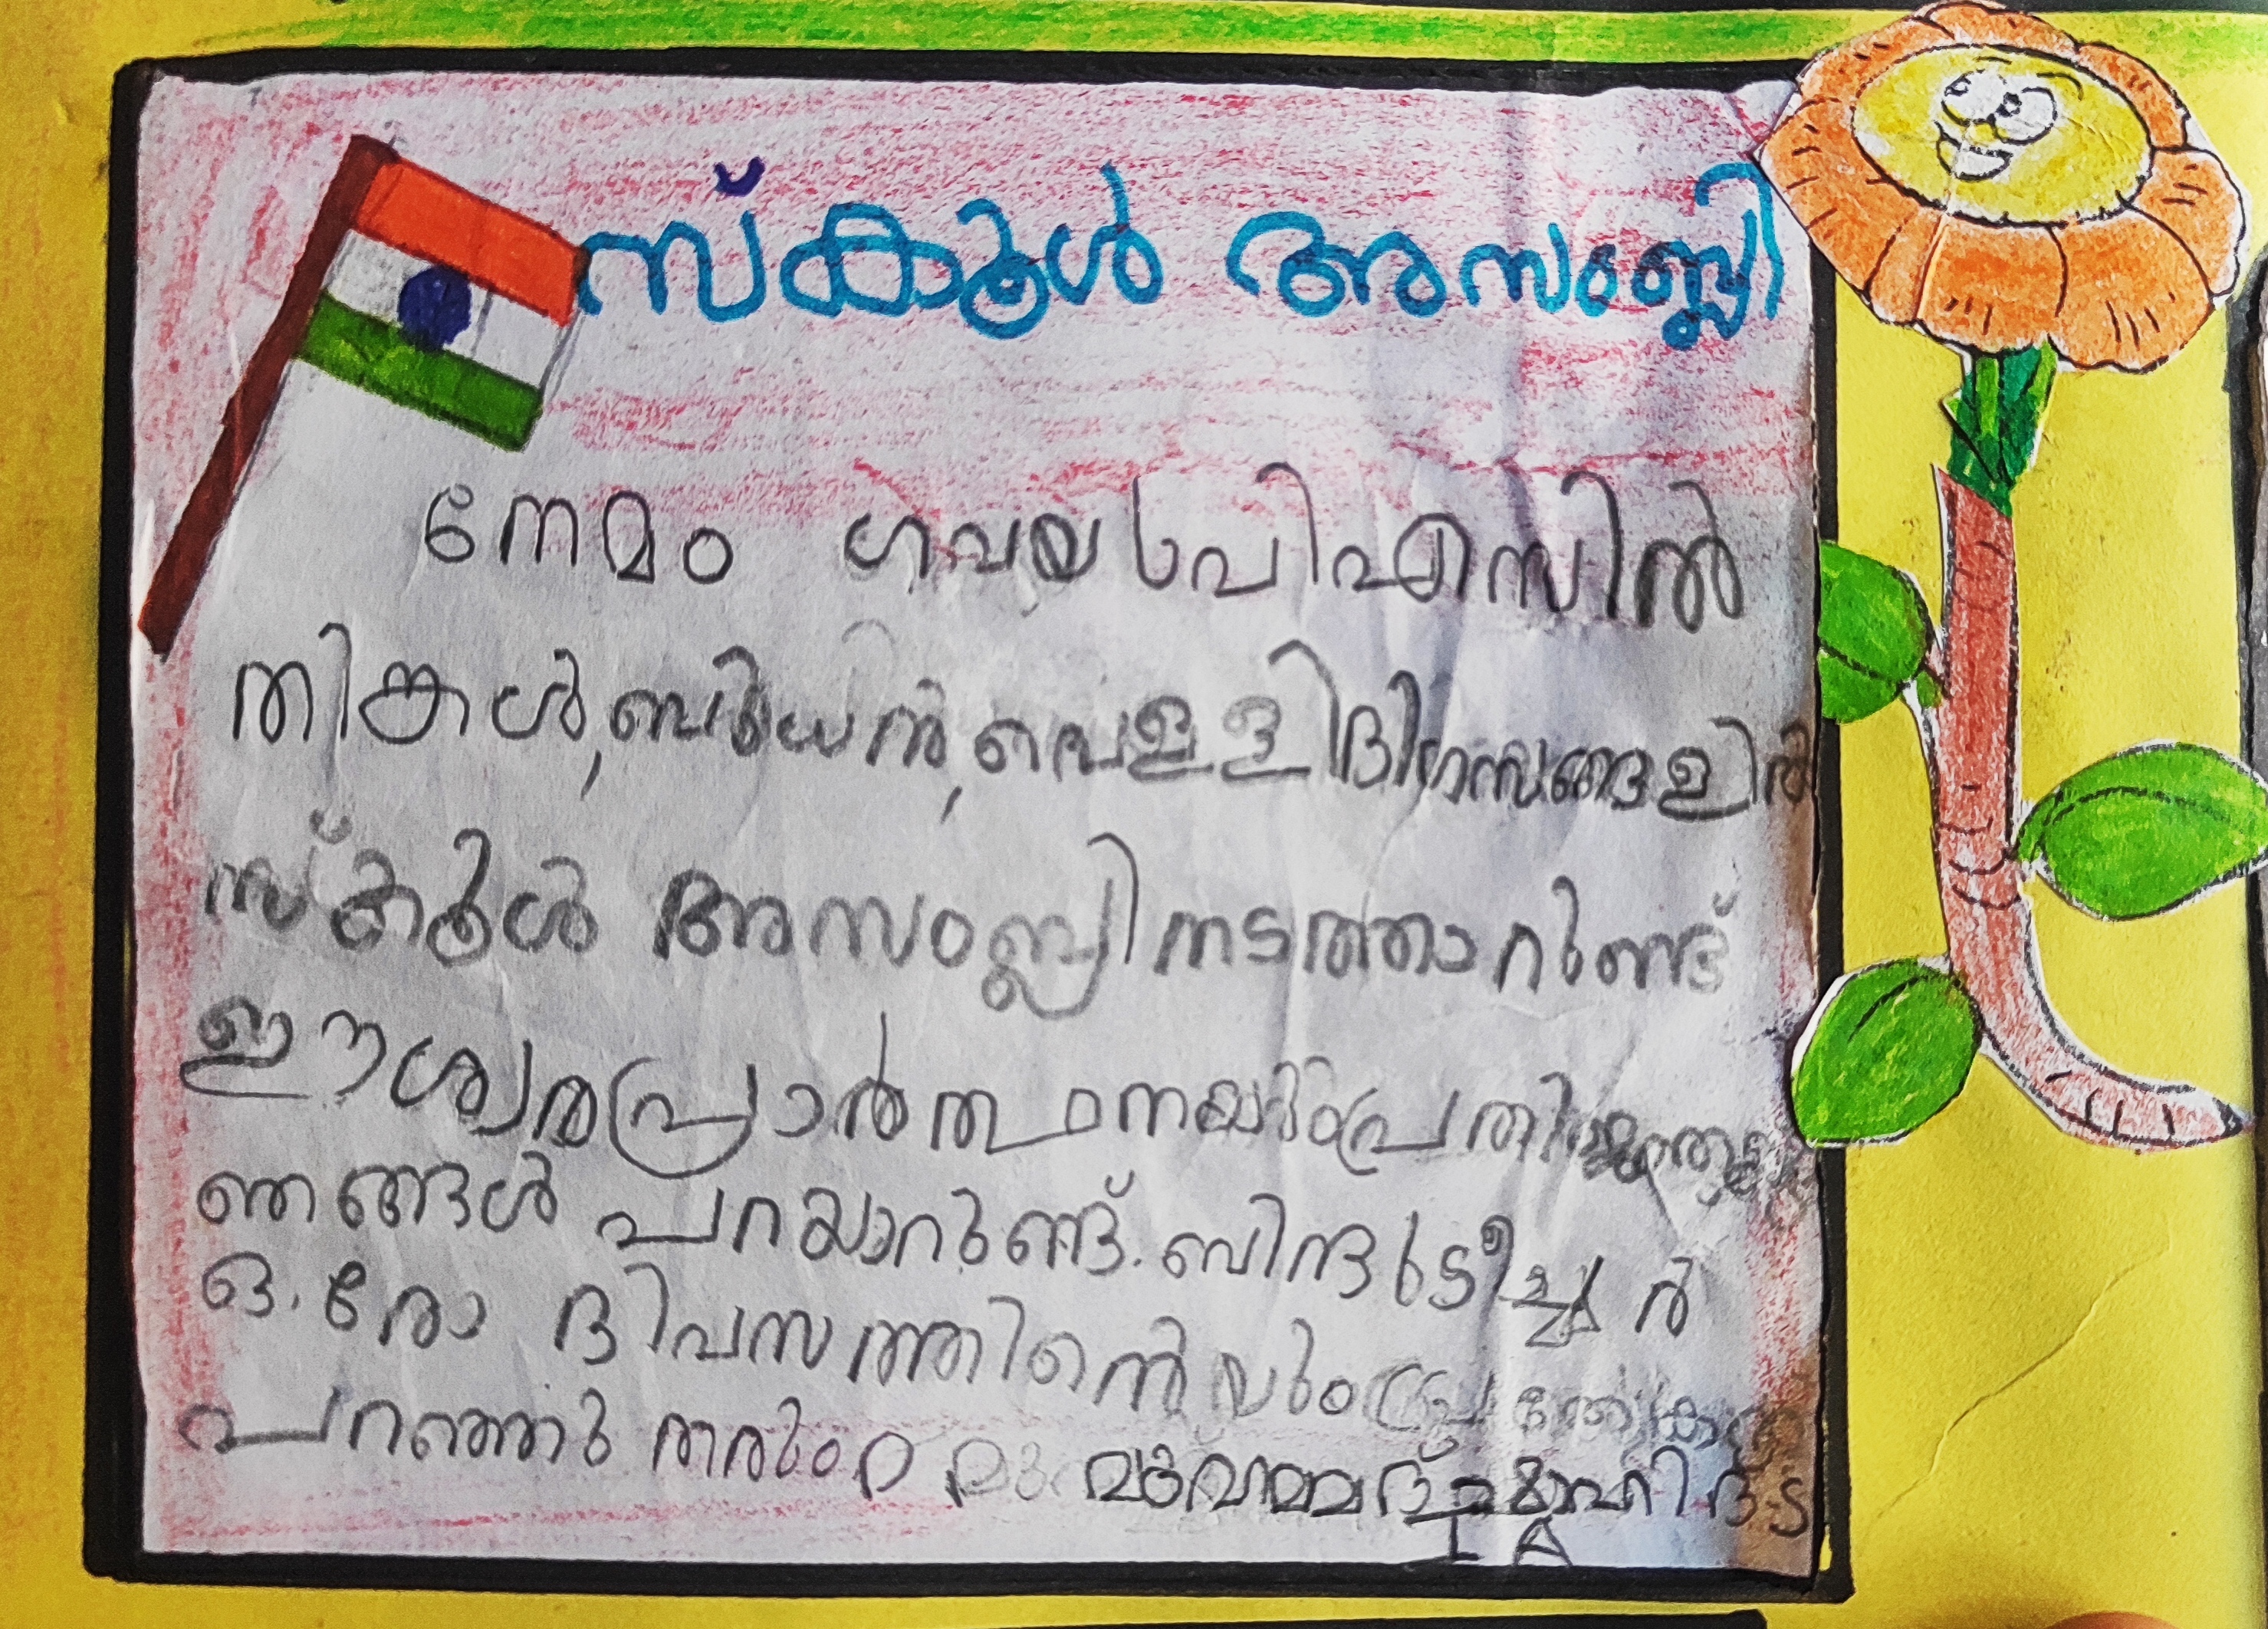 സ്കൂൾ അസംബ്ലി
നേമം ഗവയുപിഎസിൽ
തിങ്കൾ,ബുധൻ,വെള്ളിദിവസങ്ങളിൽ
സ്കൂൾ അസംബ്ലി നടത്താറുണ്ട്
ഈശ്വരപ്രാർത്ഥനയും
ഞങ്ങൾ പറയാറുണ്ട്. ബിന്ദുടീച്ചർ
ഒ.രോ ദിവസത്തിൻെയും
പറഞ്ഞു തരും
I A